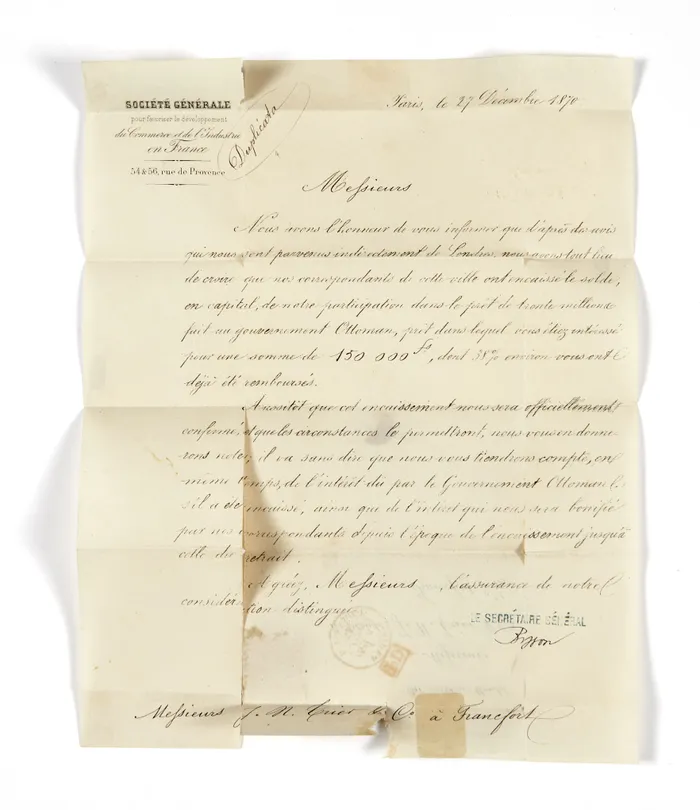 SOCIÉTÉ GÉNÉRALE
pour favoriser le développement
du Commerce et de l'Industrie
en France
54 & 56, rue de Provence
Duplicata
Paris, le 27 Décembre 1870
Messieurs
Nous avons l'honneur de vous informer que d'après des avis
qui nous sont parvenus indirectement de Londres, nous avons tout lieu
de croire que nos correspondants de cette ville ont encaissé le solde,
en capital, de notre participation dans le prêt de trente millions
fait au gouvernement Ottoman, prêt dans lequel vous étiez intéressé
pour une somme de 150 000 fs, dont 38% environ vous ont
déjà été remboursés.
Aussitôt que cet encaissement nous sera officiellement
confirmé, et que les circonstances le permettront, nous vous en donne-
rons note; il va sans dire que nous vous tiendrons compte, en
même temps, de l'intérêt dû par le Gouvernement Ottoman
s'il a été encaissé, ainsi que de l'intérêt qui nous sera bonifié
par nos correspondants depuis l'époque de l'encaissement jusqu'à
celle du retrait.
Messieurs, l'assurance de notre
considération distinguée
LE SECRÉTAIRE GÉNÉRAL
P.D.
Messieurs J. N. Trier & Co. à Francfort